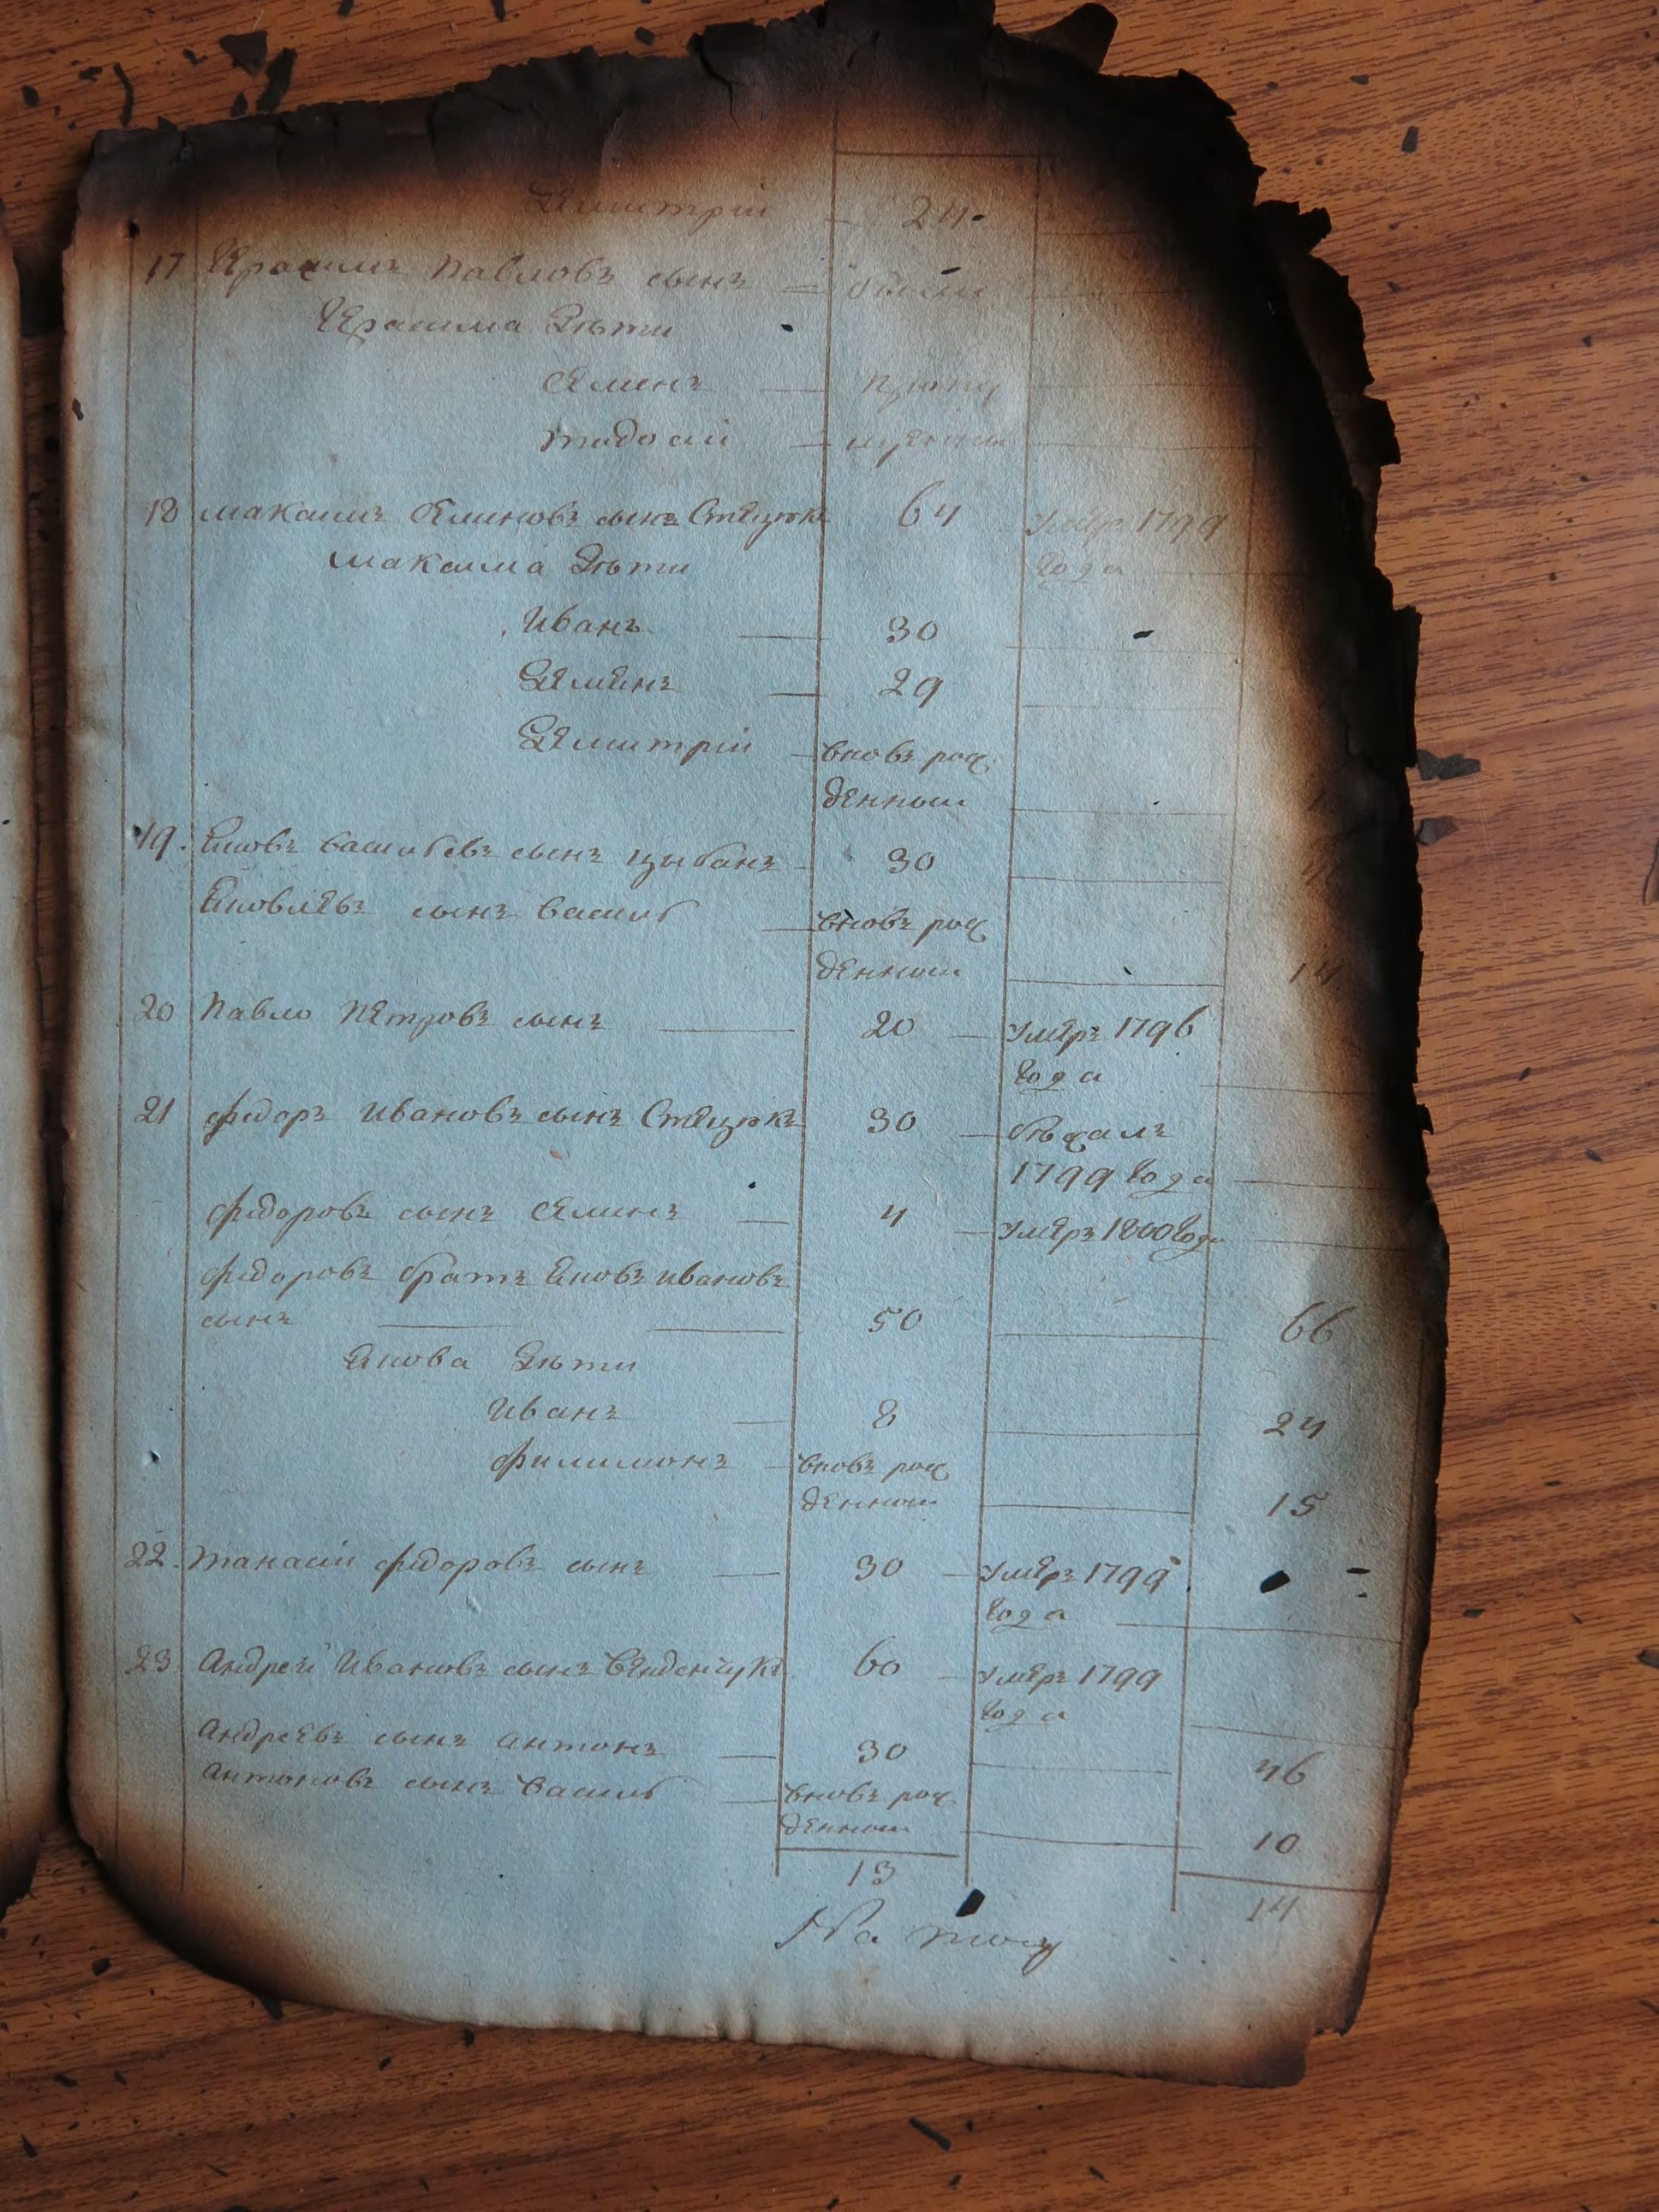 Дмитрій 24.
17 Герасимъ Павловъ сынъ
Герасима дѣти
Семенъ
Тидосій
18 Максимъ Семеновъ сынъ Стецюкъ 64 умеръ 1799
Максима дѣти года
Иванъ 30
Семенъ 29
Дмитрій вновь рож
денный
19. Яковъ Васильевъ сынъ Цыбань 30
Яковлевъ сынъ Василь вновь рож
денный 14
20 Павло Петровъ сынъ 20 умеръ 1796
года
21 Федоръ Ивановъ сынъ Стецюкъ 30 бѣжалъ
1799 года
Федоровъ сынъ Семенъ 4 умеръ 1800 года
Федоровъ братъ Яковъ Ивановъ
сынъ 50 66
Якова дѣти
Иванъ 8 24
Филимонъ вновь рож
денный 15
22. Танасій Федоровъ сынъ 30 умеръ 1799
года
23 Андрей Ивановъ сынъ 60 умеръ 1799
года
Андреевъ сынъ Антонъ 30 46
Антоновъ сынъ Василь вновь рож
денный 10
13 14
На